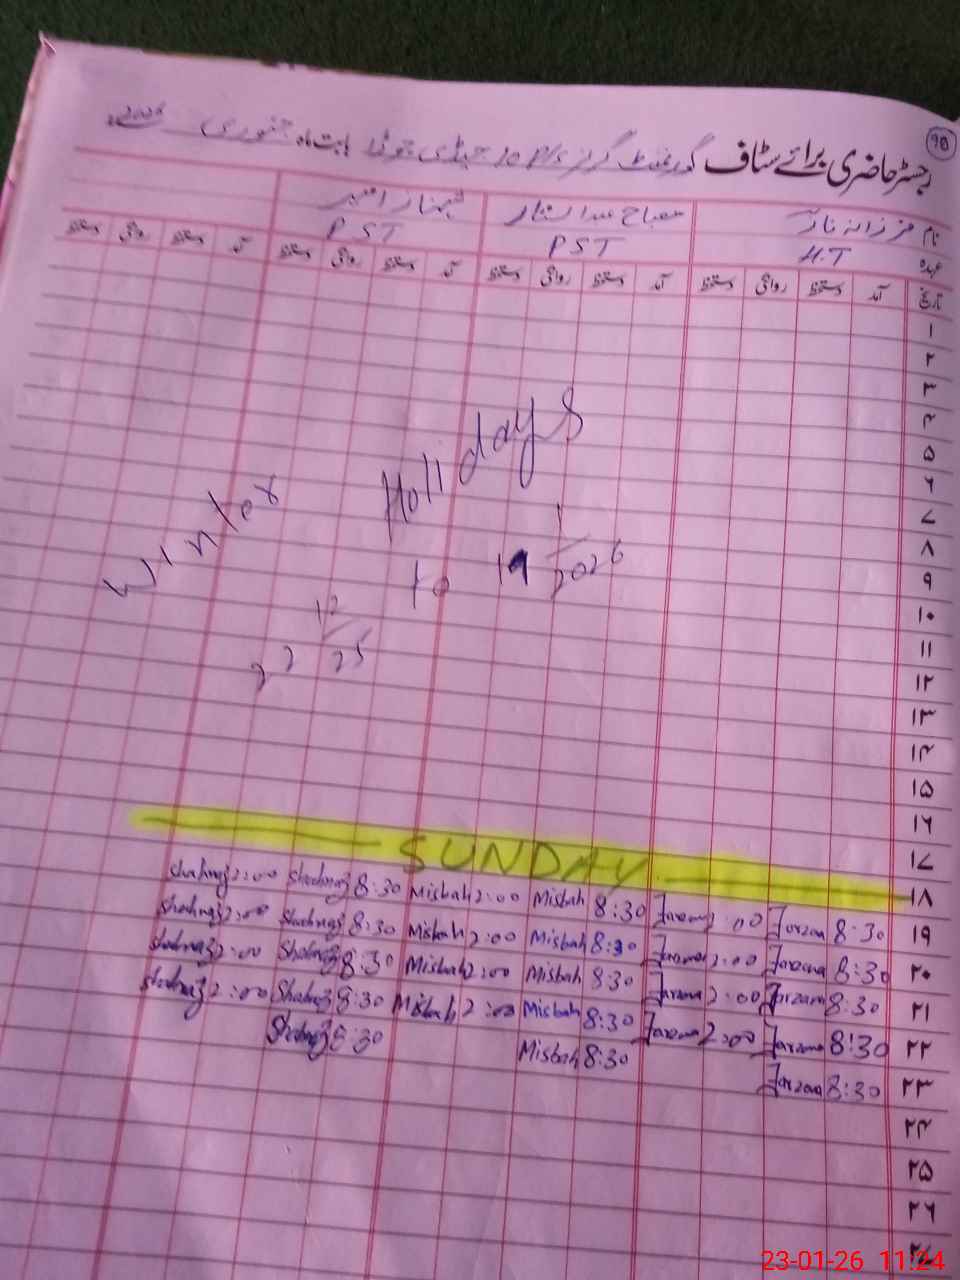 ۹۸
رجسٹر حاضری برائے سٹاف گورنمنٹ گرلز بابت ماہ جنوری 2026ء
نام فرزانہ ناز مصباح عبدالستار شہناز امیر
عہدہ H.T PST PST
تاریخ آمد دستخط روانگی دستخط آمد دستخط روانگی دستخط آمد دستخط روانگی دستخط آمد دستخط روانگی دستخط
۱
۲
۳
۴
۵
۶
۷
۸
۹
۱۰
۱۱
۱۲
۱۳
۱۴
۱۵
۱۶
۱۷
Winter Holidays
22 12/25 to 19 1/2026
۱۸ SUNDAY
۱۹ 8:30 Farzana 2:00 Farzana 8:30 Misbah 2:00 Misbah 8:30 Shahnaz 2:00 Shahnaz
۲۰ 8:30 Farzana 2:00 Farzana 8:30 Misbah 2:00 Misbah 8:30 Shahnaz 2:00 Shahnaz
۲۱ 8:30 Farzana 2:00 Farzana 8:30 Misbah 2:00 Misbah 8:30 Shahnaz 2:00 Shahnaz
۲۲ 8:30 Farzana 2:00 Farzana 8:30 Misbah 2:00 Misbah 8:30 Shahnaz 2:00 Shahnaz
۲۳ 8:30 Farzana 8:30 Misbah 8:30 Shahnaz
۲۴
۲۵
۲۶
۲۷
23-01-26 11:24